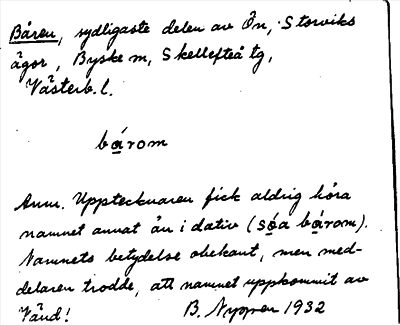 Båren, sydligaste delen av Ön, Storviks
ägor, Byske m, Skellefteå tg,
Västerb. l.
bárom
Anm. Upptecknaren fick aldrig höra
namnet annat än i dativ (sóa bárom).
Namnets betydelse obekant, men med-
delaren trodde, att namnet uppkommit av
Vänd! B. Nygren 1932